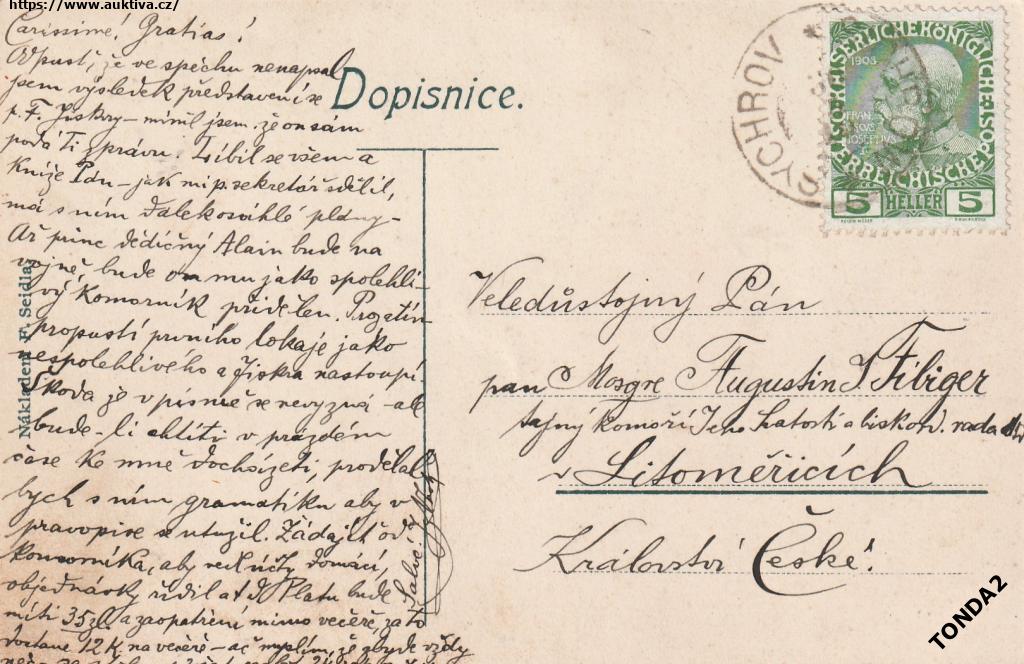 https://www.auktiva.cz/
Carissime! Gratias!
Odpusť, že ve spěchu nenapsal
jsem výsledek představení se
p. F. Jiskry – mínil jsem, že on sám
podá Ti zprávu. Líbil se všem a
Kníže Pán – jak mi p. sekretář sdělil,
má s ním dalekosáhlé plány –
Až princ dědičný Alain bude na
vojně, bude on mu jako spolehli-
vý Komorník přidělen. Prozatím
propustí prvního lokaje jako
nespolehlivého a Jiskra nastoupí.
Škoda je v písmě se nevyzná – ale
bude-li chtíti v prázdém
čase ke mně docházeti, prodělal
bych s ním gramatiku aby v
pravopise se utužil. Žádajíť od
komorníka, aby vedl účty domácí,
objednávky řídil atd. Platu bude
míti 35 zl a zaopatření mimo večeře, za to
dostane 12 K na večeře – ač myslím, že zbyde vždy
Salve!
Dopisnice.
Nákladem F. Seidla,
SYCHROV
KAISERLICHE KÖNIGLICHE ÖSTERREICHISCHE POST
1908
FRAN
CISCVS
IOSEPHVS
5 HELLER 5
Veledůstojný Pán
pan Msgre Augustin J Fibiger
tajný komoří Jeho Svatosti a biskup. rada
v Litoměřicích
Království České!
TONDA2